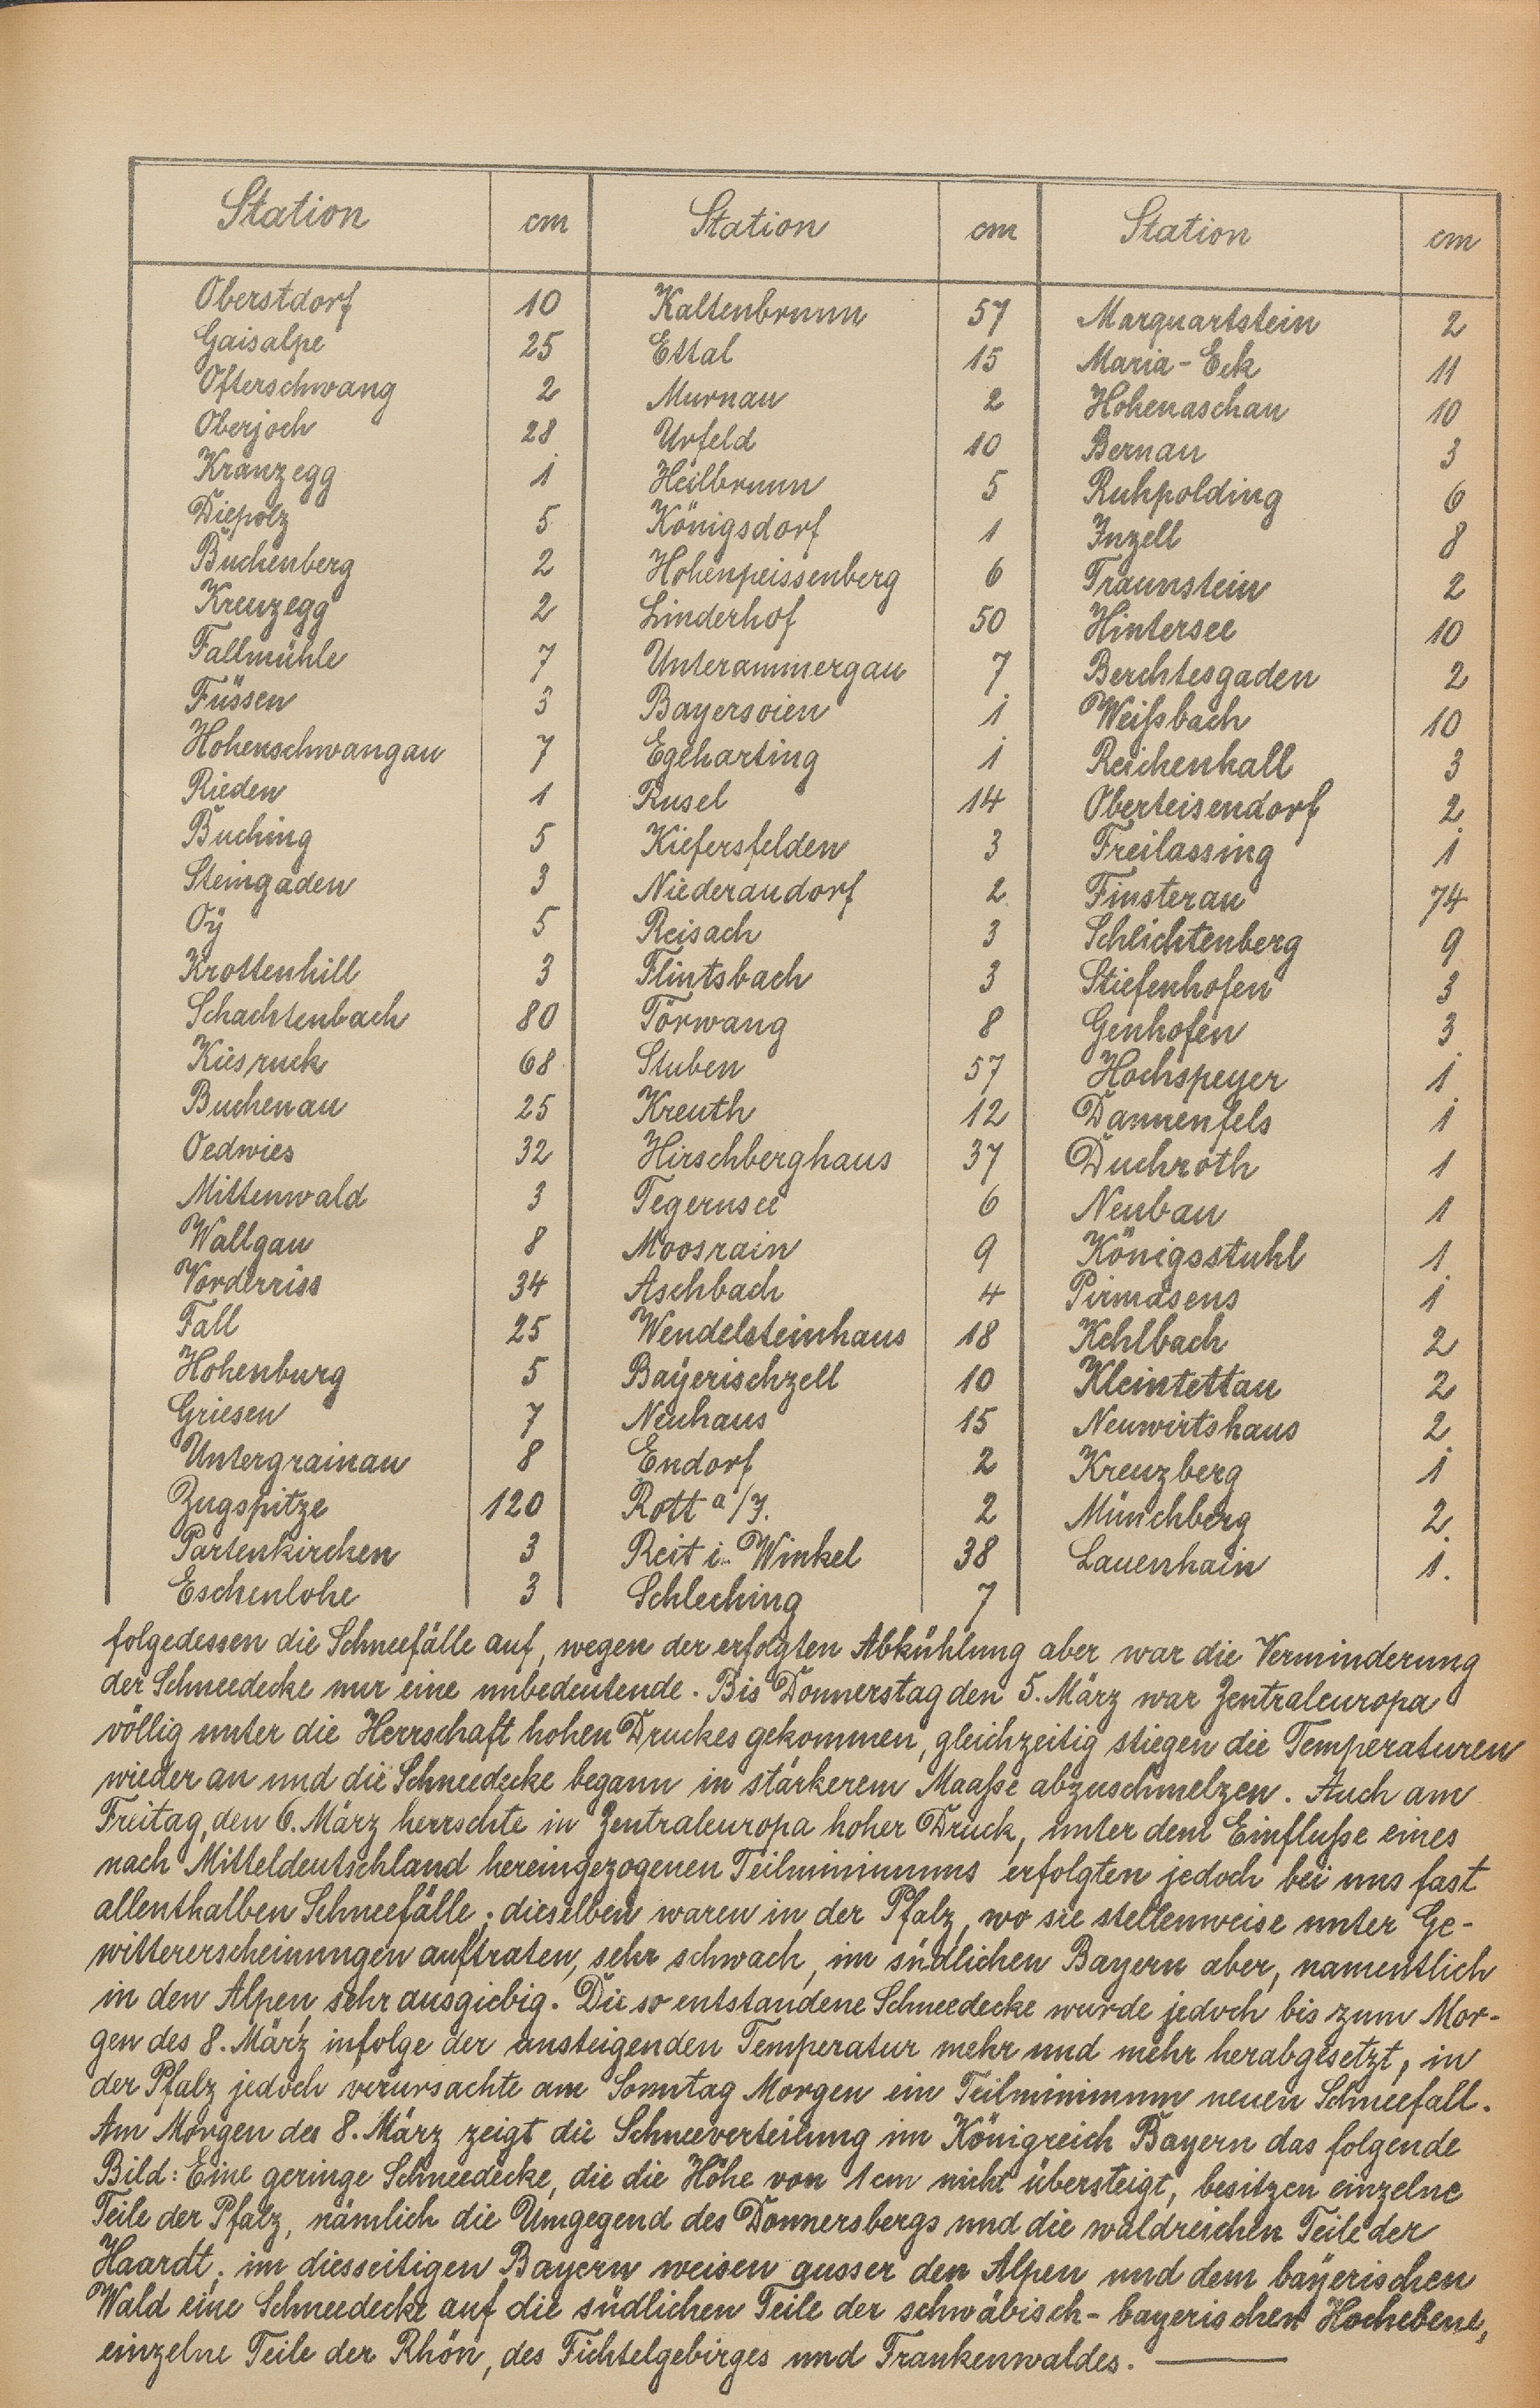 Station cm Station cm Station cm
Oberstdorf 10 Kaltenbrunn 57 Marquartstein 2
Gaisalpe 25 Ettal 15 Maria-Eck 11
Ofterschwang 2 Murnau 2 Hohenaschau 10
Oberjoch 28 Urfeld 10 Bernau 3
Kranzegg 1 Heilbrunn 5 Ruhpolding 6
Diepolz 5 Königsdorf 1 Inzell 8
Buchenberg 2 Hohenpeissenberg 6 Traunstein 2
Kreuzegg 2 Linderhof 50 Hintersee 10
Fallmühle 7 Unterammergau 7 Berchtesgaden 2
Füssen 3 Bayersoien 1 Weißbach 10
Hohenschwangau 7 Eglharting 1 Reichenhall 3
Rieden 1 Rusel 14 Oberteisendorf 2
Buching 5 Kiefersfelden 3 Freilassing 1
Steingaden 3 Niederaudorf 2 Finsterau 74
Oÿ 5 Reisach 3 Schlichtenberg 9
Krottenhill 3 Flintsbach 3 Stiefenhofen 3
Schachtenbach 80 Törwang 8 Genhofen 3
Kiesruck 68 Stuben 57 Hochspeyer 1
Buchenau 25 Kreuth 12 Dannenfels 1
Oedwies 32 Hirschberghaus 37 Duchroth 1
Mittenwald 3 Tegernsee 6 Neubau 1
Wallgau 8 Moosrain 9 Königsstuhl 1
Vorderriss 34 Aschbach 4 Pirmasens 1
Fall 25 Wendelsteinhaus 18 Kehlbach 2
Hohenburg 5 Baÿerischzell 10 Kleintettau 2
Griesen 7 Neuhaus 15 Neuwirtshaus 2
Untergrainau 8 Endorf 2 Kreuzberg 1
Zugspitze 120 Rott a/I. 2 Münchberg 2
Partenkirchen 3 Reit i. Winkel 38 Lauenhain 1.
Eschenlohe 3 Schleching 7
folgedessen die Schneefälle auf, wegen der erfolgten Abkühlung aber war die Verminderung
der Schneedecke nur eine unbedeutende. Bis Donnerstag den 5. März war Zentraleuropa
völlig unter die Herrschaft hohen Druckes gekommen, gleichzeitig stiegen die Temperaturen
wieder an und die Schneedecke begann in stärkerem Maaße abzuschmelzen. Auch am
Freitag, den 6. März herrschte in Zentraleuropa hoher Druck, unter dem Einfluße eines
nach Mitteldeutschland hereingezogenen Teilminimums erfolgten jedoch bei uns fast
allenthalben Schneefälle; dieselben waren in der Pfalz, wo sie stellenweise unter Ge-
wittererscheinungen auftraten, sehr schwach, im südlichen Bayern aber, namentlich
in den Alpen, sehr ausgiebig. Die so entstandene Schneedecke wurde jedoch bis zum Mor-
gen des 8. März infolge der ansteigenden Temperatur mehr und mehr herabgesetzt, in
der Pfalz jedoch verursachte am Sonntag Morgen ein Teilminimum neuen Schneefall.
Am Morgen des 8. März zeigt die Schneeverteilung im Königreich Bayern das folgende
Bild: Eine geringe Schneedecke, die die Höhe von 1 cm nicht übersteigt, besitzen einzelne
Teile der Pfalz, nämlich die Umgegend des Donnersbergs und die waldreichen Teile der
Haardt; im diesseitigen Bayern weisen ausser den Alpen und dem baÿerischen
Wald eine Schneedecke auf die südlichen Teile der schwäbisch-bayerischen Hochebene,
einzelne Teile der Rhön, des Fichtelgebirges und Frankenwaldes. —